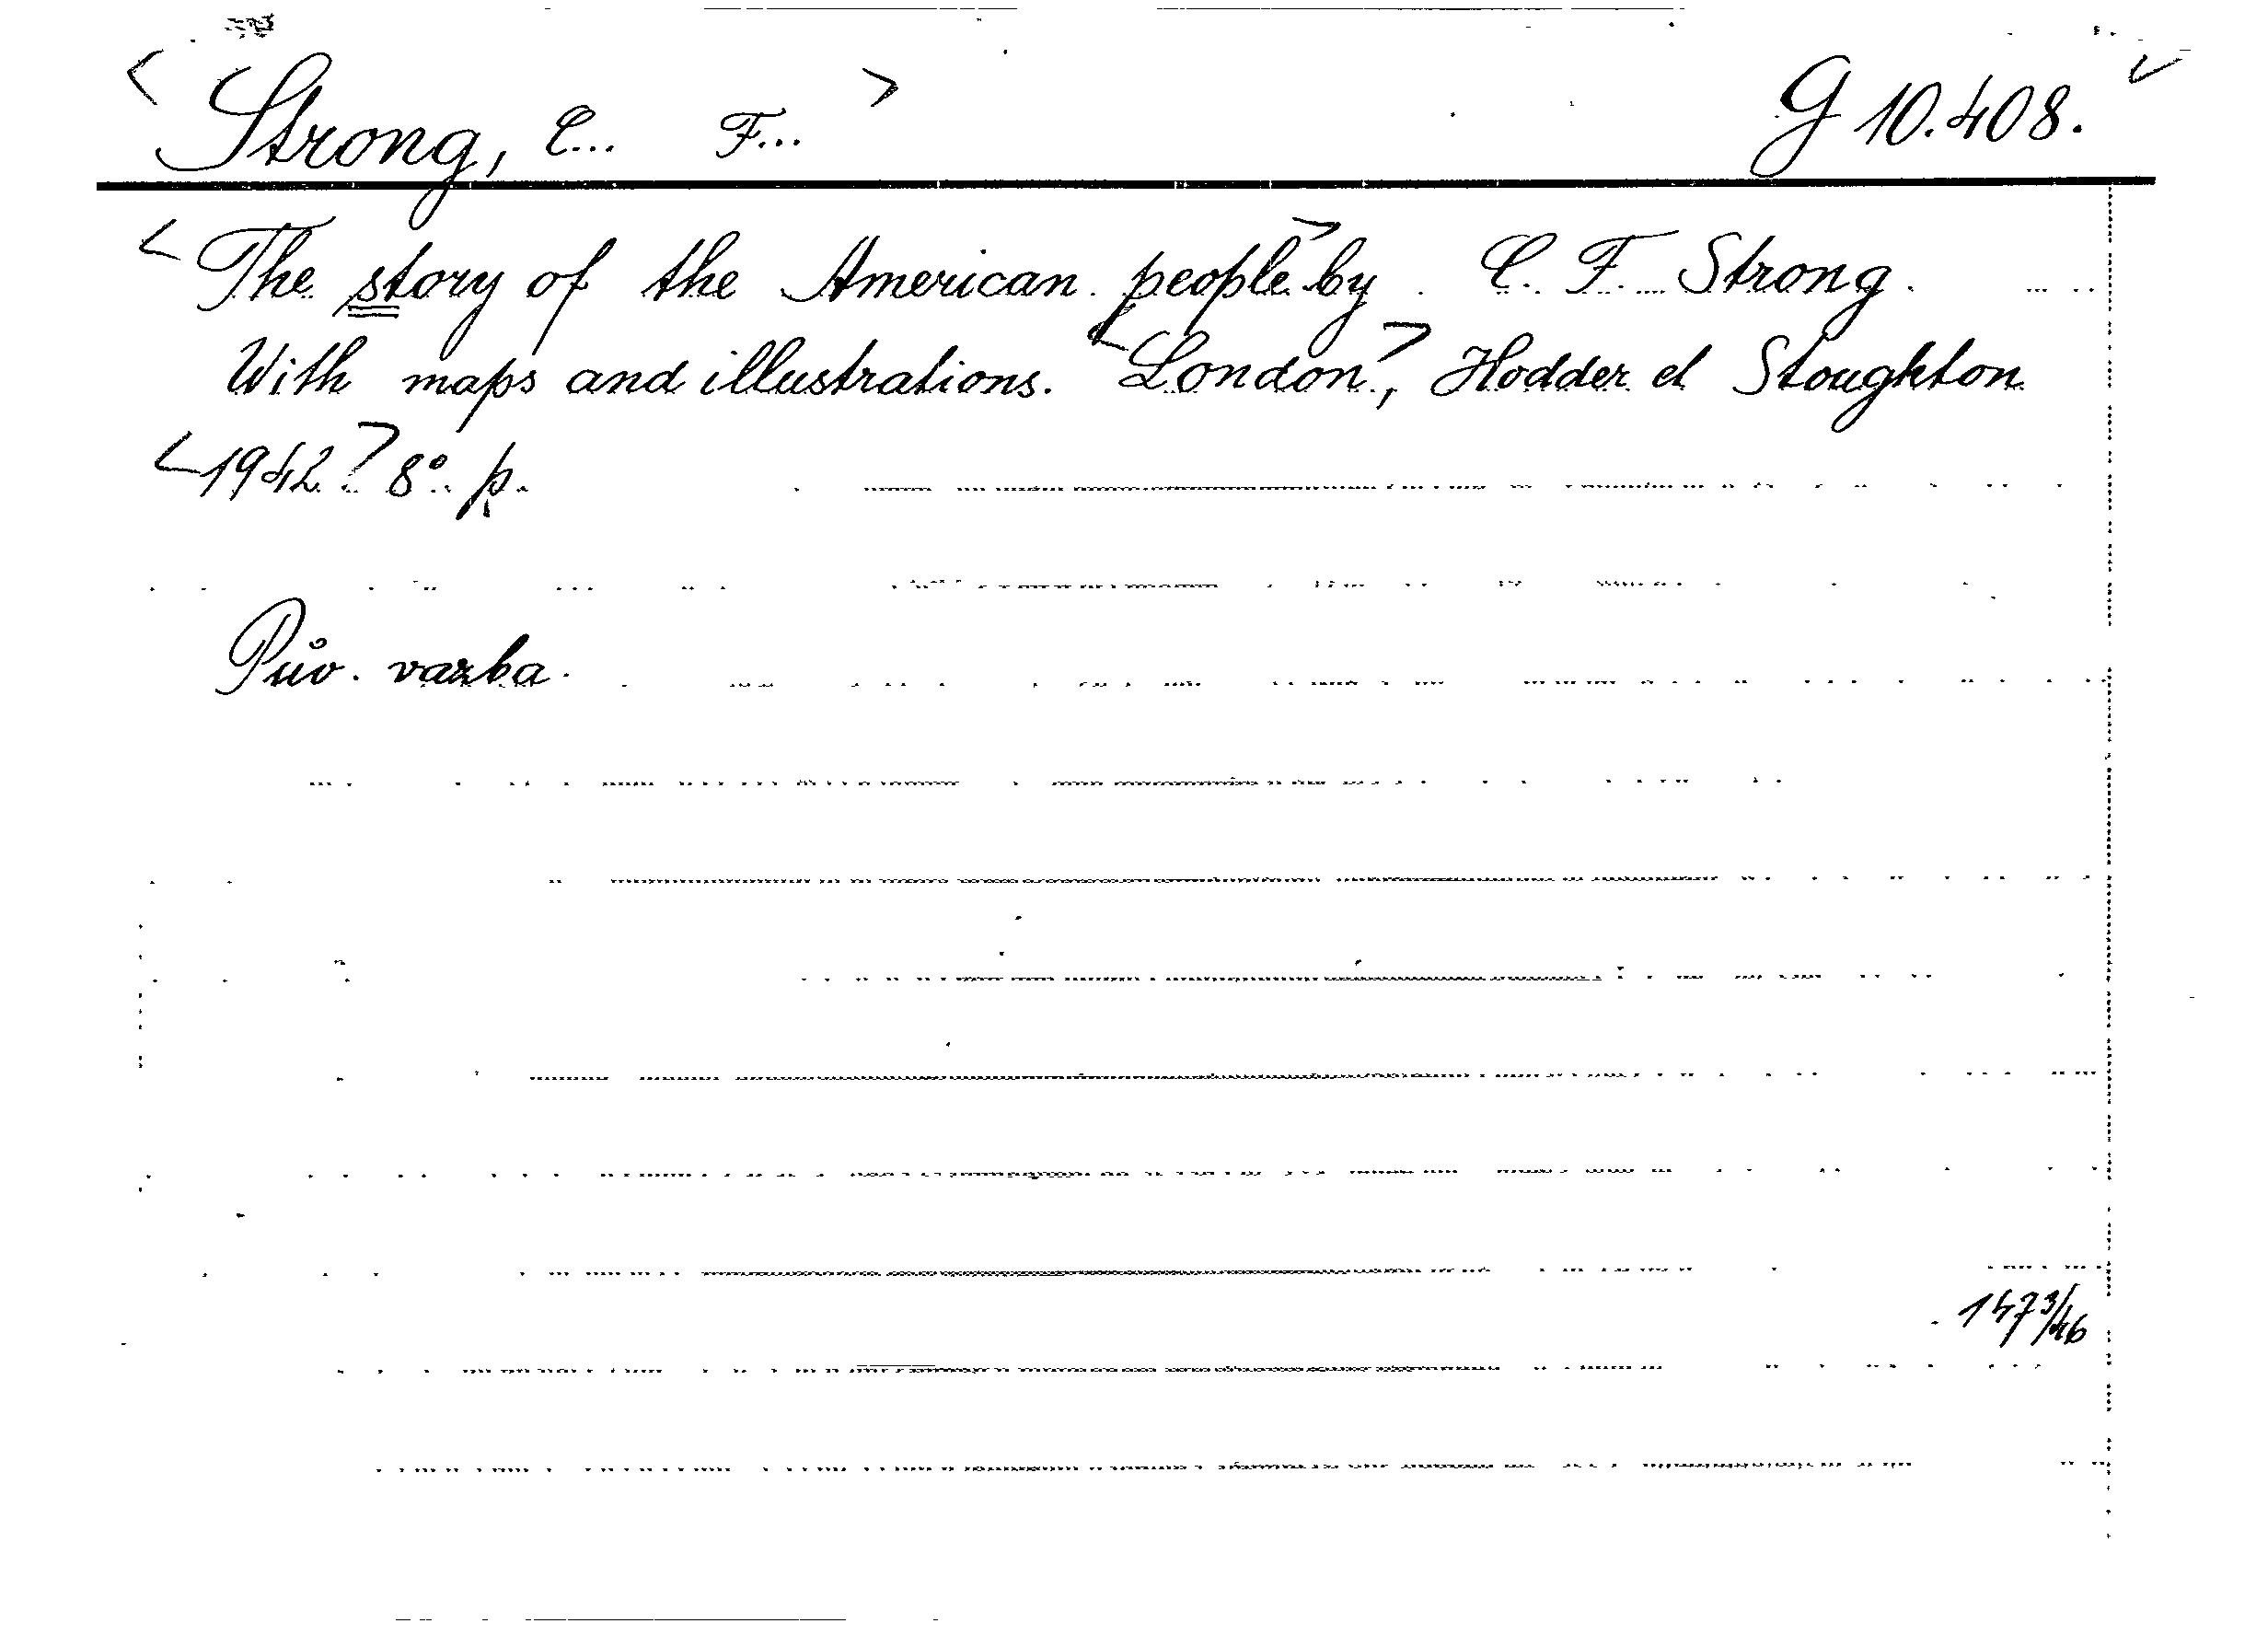 <Strong, C... F...> G 10.408.
<The story of the American people> by C. F. Strong.
With maps and illustrations. <London>, Hodder et Stoughton
<1942> 8°. p.
Pův. vazba.
1573/46